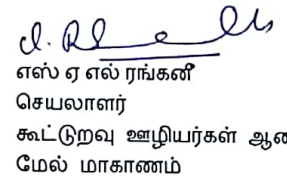 எஸ் ஏ எல் ரங்கனீ
செயலாளர்
கூட்டுறவு ஊழியர்கள்
மேல் மாகாணம்